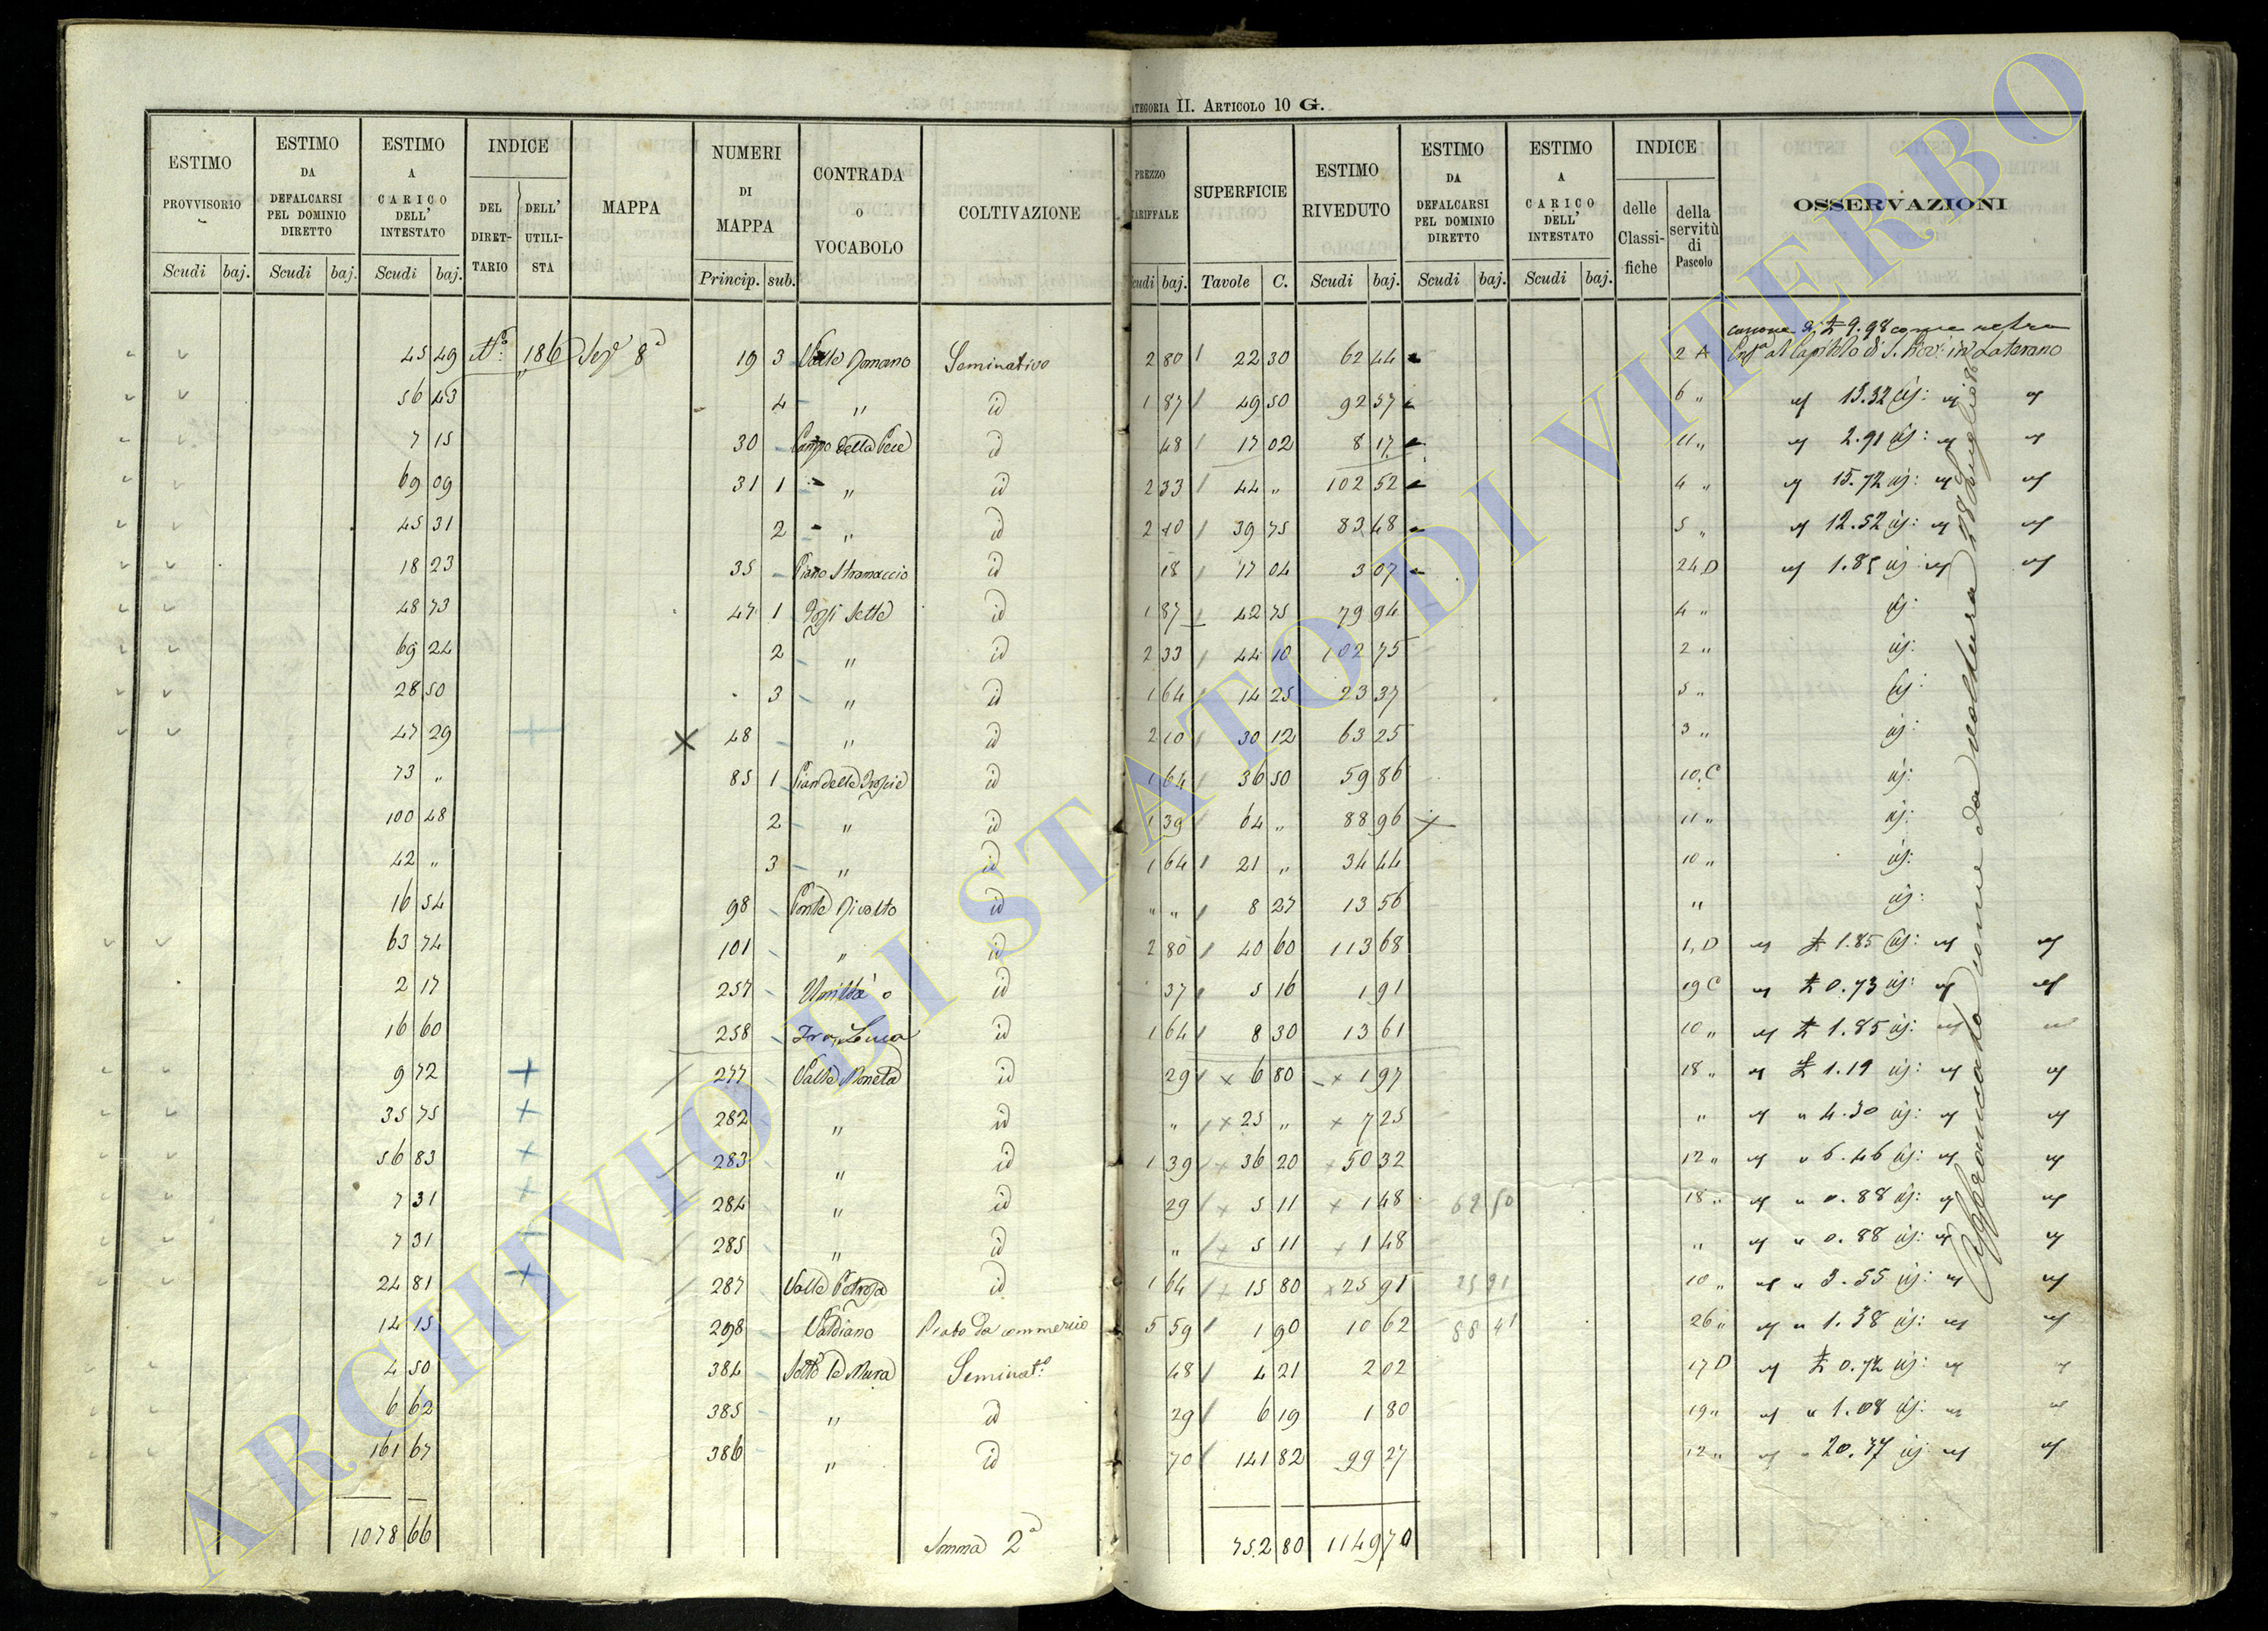 CATEGORIA II. ARTICOLO 10 G.
ESTIMO PROVVISORIO Scudi baj. | ESTIMO DA DEFALCARSI PEL DOMINIO DIRETTO Scudi baj. | ESTIMO A CARICO DELL' INTESTATO Scudi baj. | INDICE DEL DIRETTARIO DELL' UTILISTA | MAPPA | NUMERI DI MAPPA Princip. sub. | CONTRADA O VOCABOLO | COLTIVAZIONE | PREZZO TARIFFALE Scudi baj. | SUPERFICIE Tavole C. | ESTIMO RIVEDUTO Scudi baj. | ESTIMO DA DEFALCARSI PEL DOMINIO DIRETTO Scudi baj. | ESTIMO A CARICO DELL' INTESTATO Scudi baj. | INDICE delle Classifiche della servitù di Pascolo | OSSERVAZIONI
canone di £ 9.98 come retro
45 49 N.° 186 Sez. 8ª 19 3 Valle Romano Seminativo 2 80 22 30 62 44 2 A al Capitolo di S. Giov. in Laterano
56 43 4 " id 1 87 49 50 92 57 6 " 13.32
7 15 30 Campo della Pece id 48 17 02 8 17 11 " 2.91
69 09 31 1 " id 2 33 44 " 102 52 4 " 15.72
45 31 2 " id 2 10 39 75 83 48 5 " 12.52
18 23 35 Piano Stramaccio id 18 17 04 3 07 24 D 1.85
48 73 47 1 Poggi Sette id 1 87 42 75 79 94 4 "
69 24 2 " id 2 33 44 10 102 75 2 "
28 50 3 " id 1 64 14 25 23 37 5 "
47 29 48 " id 2 10 30 12 63 25 3 "
73 " 85 1 Pian delle id 1 64 36 50 59 86 10 C
100 48 2 " id 1 39 64 " 88 96 11 "
42 " 3 " id 1 64 21 " 34 44 10 "
16 54 98 Ponte Rivolto id " " 8 27 13 56 "
63 74 101 " id 2 80 40 60 113 68 1 D £ 1.85
2 17 257 Umiltà o id 37 5 16 1 91 19 C £ 0.73
16 60 258 id 1 64 8 30 13 61 10 " £ 1.85
9 72 277 Valle Moneta id 29 6 80 1 97 18 " £ 1.19
35 75 282 " id " 25 " 7 25 " " 4.30
56 83 283 " id 1 39 36 20 50 32 12 " " 6.46
7 31 284 " id 29 5 11 1 48 62 50 18 " " 0.88
7 31 285 " id " 5 11 1 48 " " 0.88
24 81 287 Valle Petrosa id 1 64 15 80 25 91 25 91 10 " " 3.55
14 15 298 Valdiano Prato da commercio 5 59 1 90 10 62 88 41 26 " " 1.38
4 50 384 Sotto le Mura Seminat.° 48 4 21 2 02 17 D £ 0.72
6 62 385 " id 29 6 19 1 80 19 " " 1.08
161 67 386 " id 70 141 82 99 27 12 " 20.77
1078 66 Somma 2ª 752 80 1149 70
Affrancato come da voltura
ARCHIVIO DI STATO DI VITERBO